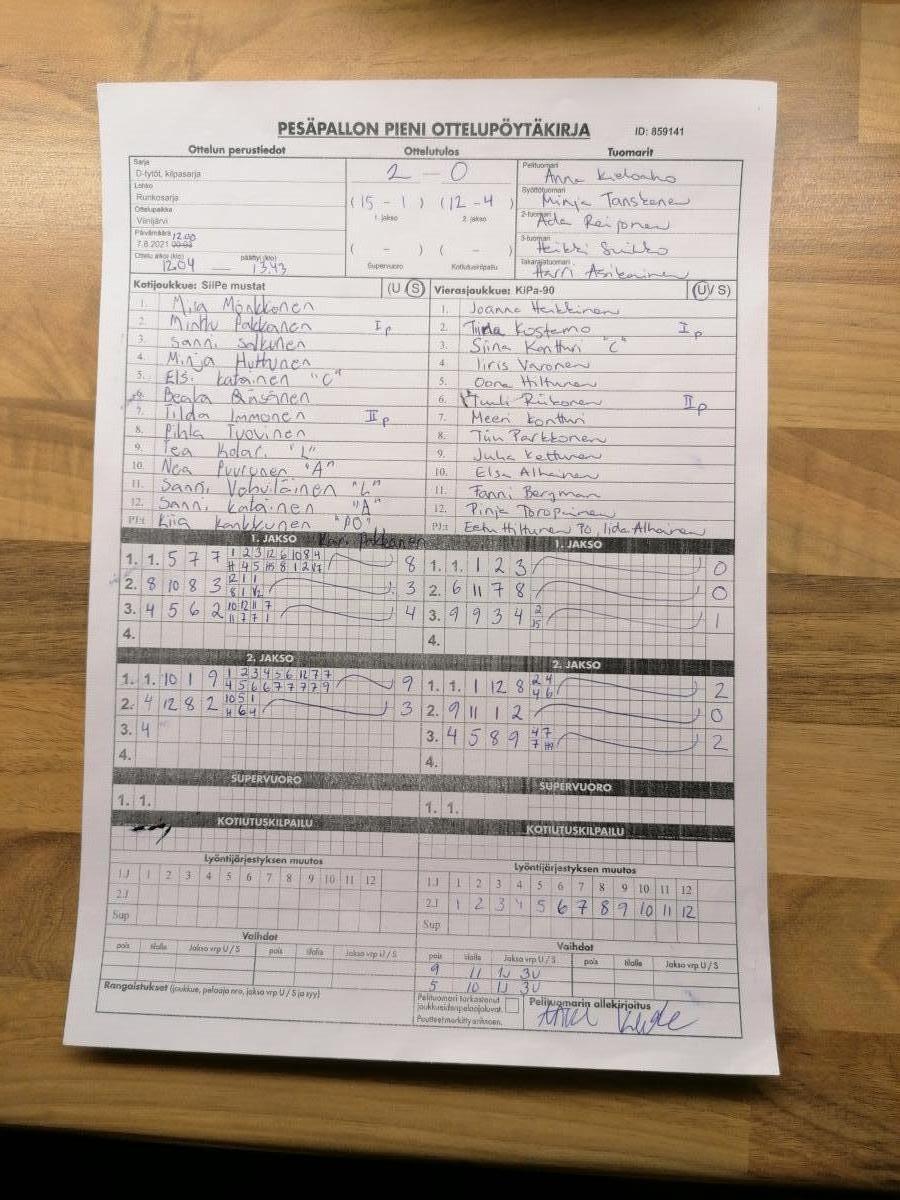 PESÄPALLON PIENI OTTELUPÖYTÄKIRJA ID: 859141
Ottelun perustiedot Ottelutulos Tuomarit
Sarja
D-tytöt, kilpasarja
Lohko
Runkosarja
Ottelupaikka
Viinijärvi
Päivämäärä 12.00
7.8.2021
Ottelu alkoi (klo) päättyi (klo)
12.04 — 13.43
2 — 0
( 15 - 1 ) ( 12 - 4 )
1. jakso 2. jakso
( - ) ( - )
Supervuoro Kotiutuskilpailu
Pelituomari
Anna
Syöttötuomari
Minja Tanskanen
2-tuomari
Ada Reijonen
3-tuomari
Heikki
Takarajatuomari
Harri Asikainen
Kotijoukkue: SiiPe mustat (U / S)
1. Miia Mönkkönen
2. Minttu Pakkanen I p
3. Sanni
4. Minja Huttunen
5. Elsi Katainen "C"
6. Räsänen
7. Tilda Immonen II p
8. Pihla Tuovinen
9. Tea "L"
10. Nea Puurunen "A"
11. Sanni Vahviläinen "L"
12. Sanni Katainen "A"
PJ:t Kiia Konkkunen "PO"
Kari Pakkanen
Vierasjoukkue: KiPa-90 (U / S)
1. Joanna Heikkinen
2. Kostamo I p
3. Siina Kontturi "C"
4. Iiris Varonen
5. Oona Hiltunen
6. Tuuli Riikonen II p
7. Meeri Kontturi
8. Parkkonen
9. Julia Kettunen
10. Elsa Alhainen
11. Fanni Bergman
12. Pinja Toropainen
PJ:t Eetu Hiltunen PO, Iida Alhainen
1. JAKSO
1. 1. 5 7 7 1 2 3 12 6 10 8 4 8
2. 8 10 8 3 12 1 1 3
3. 4 5 6 2 10 12 11 7 4
11 7 7 1
4.
1. JAKSO
1. 1. 1 2 3 0
2. 6 11 7 8 0
3. 9 9 3 4 2 1
4.
2. JAKSO
1. 1. 10 1 9 1 2 3 4 5 6 12 7 7 9
4 5 6 6 7 7 7 7 9
2. 4 12 8 2 10 5 1 3
3. 4
4.
2. JAKSO
1. 1. 1 12 8 2 4 2
4 6
2. 9 11 1 2 0
3. 4 5 8 9 4 7 2
4.
SUPERVUORO
1. 1.
SUPERVUORO
1. 1.
KOTIUTUSKILPAILU
KOTIUTUSKILPAILU
Lyöntijärjestyksen muutos
1.J 1 2 3 4 5 6 7 8 9 10 11 12
2.J
Sup
Lyöntijärjestyksen muutos
1.J 1 2 3 4 5 6 7 8 9 10 11 12
2.J 1 2 3 4 5 6 7 8 9 10 11 12
Sup
Vaihdot
pois tilalle Jakso vrp U / S pois tilalle Jakso vrp U / S
Vaihdot
pois tilalle Jakso vrp U / S pois tilalle Jakso vrp U / S
9 11 1J 3U
5 10 1J 3U
Rangaistukset (joukkue, pelaaja nro, jakso vrp U / S ja syy)
Pelituomari tarkastanut
joukkueidenpelaajaluvat.
Puutteet merkitty erikseen.
Pelituomarin allekirjoitus